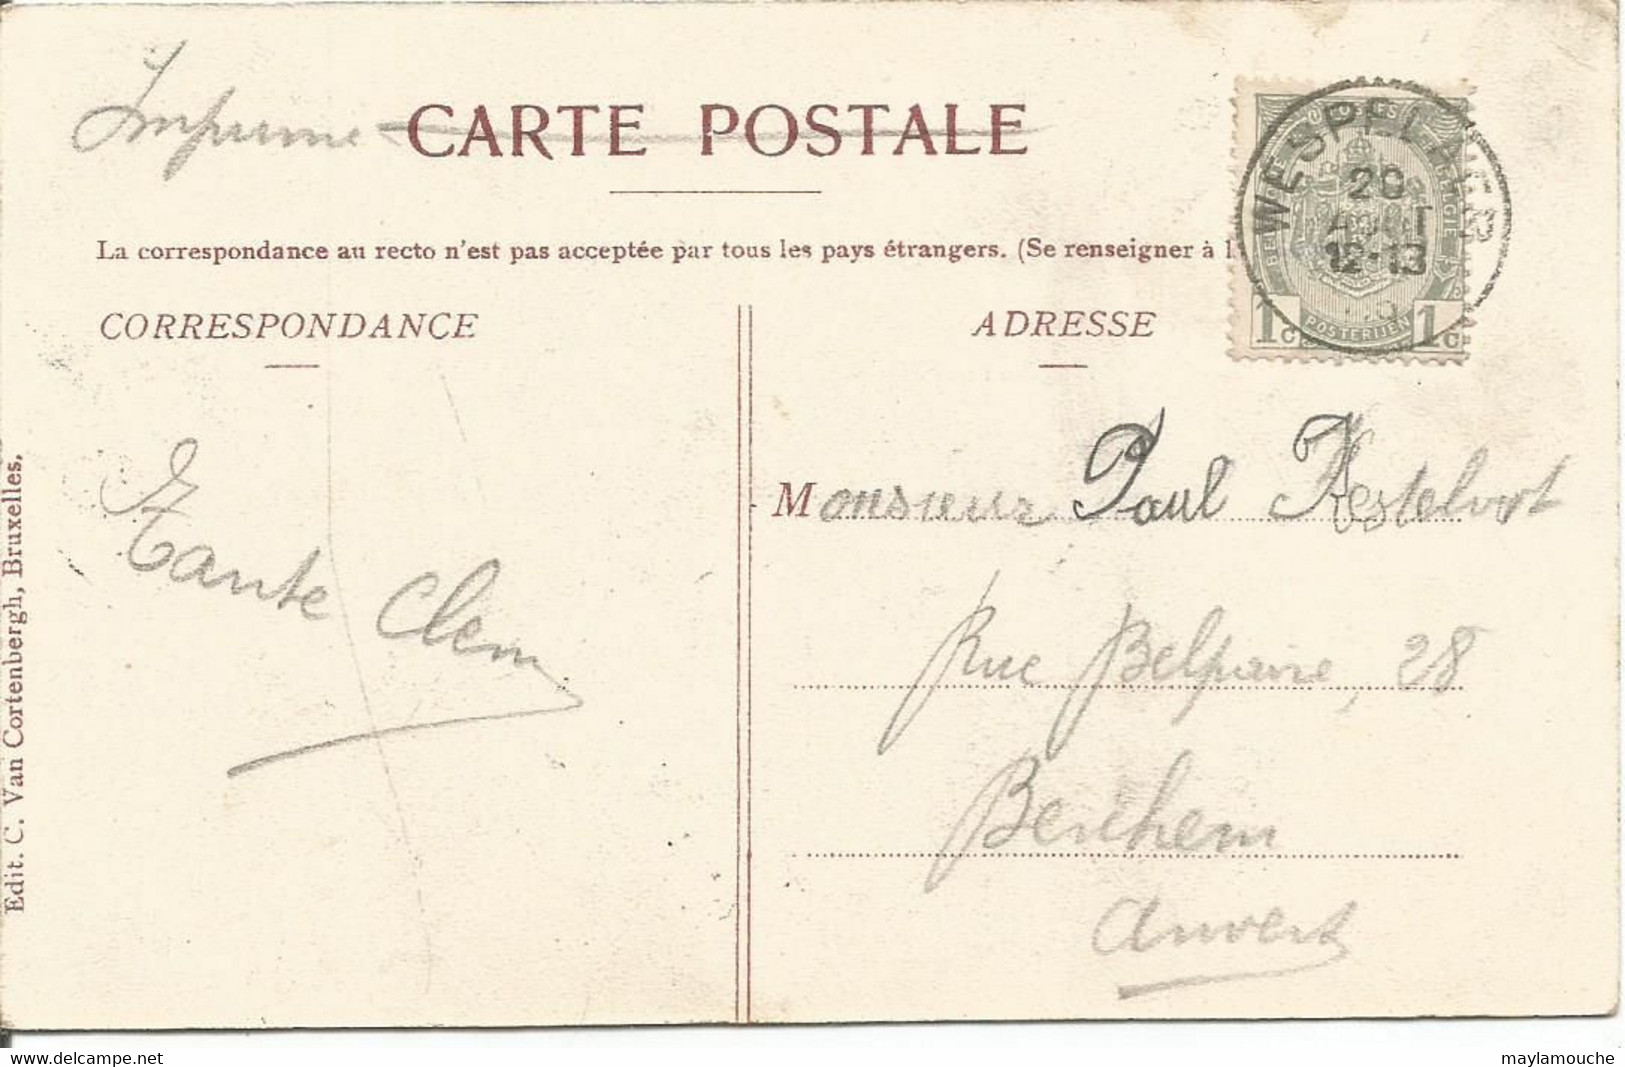 Imprimé
CARTE POSTALE
La correspondance au recto n'est pas acceptée par tous les pays étrangers. (Se renseigner à l
CORRESPONDANCE
ADRESSE
WESPELAER
20
AOUT
12-13
BELGIQUE
BELGIE
POSTERIJEN
1c
1c
Tante Clem
Monsieur Paul Kesteloot
Rue Belpaire, 28
Berchem
Anvers
Edit. C. Van Cortenbergh, Bruxelles.
delcampe.net
maylamouche